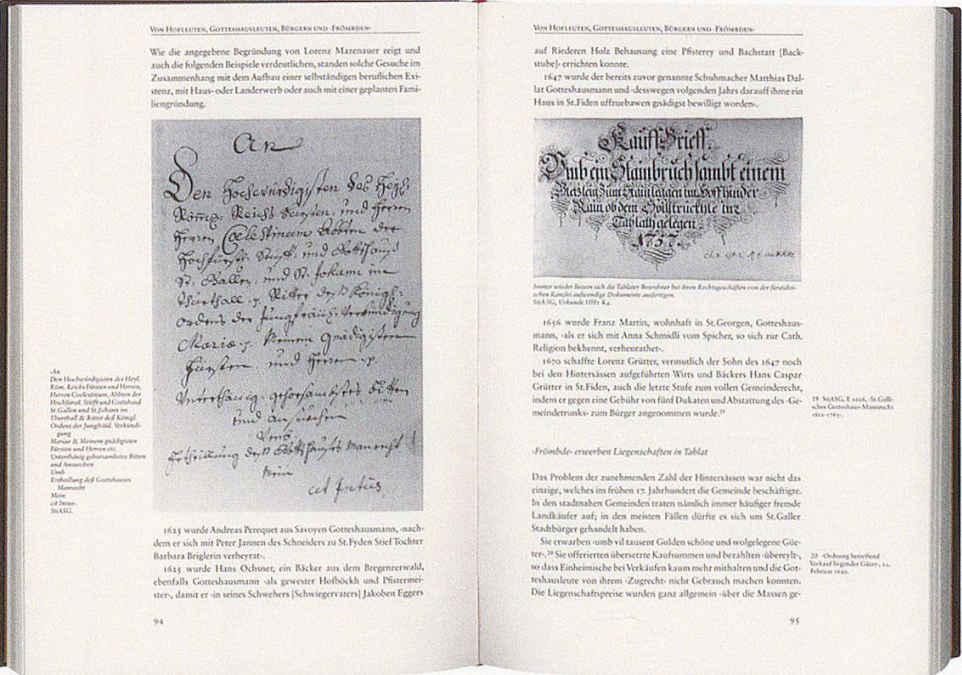 VON HOFLEUTEN, GOTTESHAUSLEUTEN, BÜRGERN UND ‹FRÖMBDEN›
Wie die angegebene Begründung von Lorenz Matenauer zeigt und
auch die folgenden Beispiele verdeutlichen, standen solche Gesuche im
Zusammenhang mit dem Aufbau einer selbständigen beruflichen Exi-
stenz, mit Haus- oder Landerwerb oder auch mit einer geplanten Fami-
liengründung.
An
Den Hochwürdigisten des Heyl.
Röm. Reichs Fürsten und Herren,
Herren Coelestinum Abbten der
Hochfürstl. Stüfft und Gottshaus
St. Gallen und St. Johann im
Thurthall Ritter deß Königl.
ordens der Jungfräul. Verkündigung
Mariae Meinem gnädigisten
Fürsten und Herren
Unterthänig gehorsambstes bitten
und an suechen
Umb
Ertheillung deß Gottshauses Manrecht
Mein
cit Intus
‹An
Den Hochwürdigisten des Heyl.
Röm. Reichs Fürsten und Herren,
Herren Coelestinum, Abbten der
Hochfürstl. Stüfft und Gottshaus
St.Gallen und St.Johann im
Thurthall & Ritter deß Königl.
Ordens der Jungfräul. Verkündi-
gung
Mariae & Meinem gnädigisten
Fürsten und Herren etc.
Unterthänig gehorsambstes Bitten
und Ansuechen
Umb
Ertheillung deß Gottshauses
Manrecht
Mein
cit Intus›.
StiASG.
1625 wurde Andreas Perequet aus Savoyen Gotteshausmann, ‹nach-
dem er sich mit Peter Jannen des Schneiders zu St.Fyden Stief Tochter
Barbara Briglerin verheyrat›.
1625 wurde Hans Ochsner, ein Bäcker aus dem Bregenzerwald,
ebenfalls Gotteshausmann ‹als gewester Hofböckh und Pfistermei-
ster›, damit er ‹in seines Schwehers [Schwiegervaters] Jakoben Eggers
94
VON HOFLEUTEN, GOTTESHAUSLEUTEN, BÜRGERN UND ‹FRÖMBDEN›
auf Riederen Holz Behausung eine Pfisterey und Bachstatt [Back-
stube]› errichten konnte.
1647 wurde der bereits zuvor genannte Schuhmacher Matthias Dal-
lat Gotteshausmann und ‹desswegen volgenden Jahrs darauff ihme ein
Haus in St.Fiden uffzuebawen gnädigst bewilligt worden›.
Kauff Brieff.
Umb ein Stainbruch sambt einem
Pletzlein Zum Stainleggen im Hoff hinder
Rain ob dem
Tablath gelegen.
1757.
Immer wieder liessen sich die Tablater Bewohner bei ihren Rechtsgeschäften von der fürstäbti-
schen Kanzlei aufwendige Dokumente ausfertigen.
StiASG, Urkunde HH1 K4.
1656 wurde Franz Martin, wohnhaft in St.Georgen, Gotteshaus-
mann, ‹als er sich mit Anna Schmidli vom Spicher, so sich zur Cath.
Religion bekhennt, verheurathet›.
1670 schaffte Lorenz Grütter, vermutlich der Sohn des 1647 noch
bei den Hintersässen aufgeführten Wirts und Bäckers Hans Caspar
Grütter in St.Fiden, auch die letzte Stufe zum vollen Gemeinderecht,
indem er gegen eine Gebühr von fünf Dukaten und Abstattung des ‹Ge-
meindetrunks› zum Bürger angenommen wurde.19
19 StiASG, E 1226, St.Galli-
sches Gotteshaus-Mannrecht
1612-1765›.
‹Frömbde› erwerben Liegenschaften in Tablat
Das Problem der zunehmenden Zahl der Hintersässen war nicht das
einzige, welches im frühen 17. Jahrhundert die Gemeinde beschäftigte.
In den stadtnahen Gemeinden traten nämlich immer häufiger fremde
Landkäufer auf; in den meisten Fällen dürfte es sich um St.Galler
Stadtbürger gehandelt haben.
Sie erwarben ‹umb vil tausent Gulden schöne und wolgelegene Güe-
ter›.20 Sie offerierten übersetzte Kaufsummen und bezahlten ‹übereylt›,
so dass Einheimische bei Verkäufen kaum mehr mithalten und die Got-
teshausleute von ihrem ‹Zugrecht› nicht Gebrauch machen konnten.
Die Liegenschaftspreise wurden ganz allgemein ‹über die Massen ge-
20 ‹Ordnung betreffend
Verkauf liegender Güter›, 22.
Februar 1620.
95